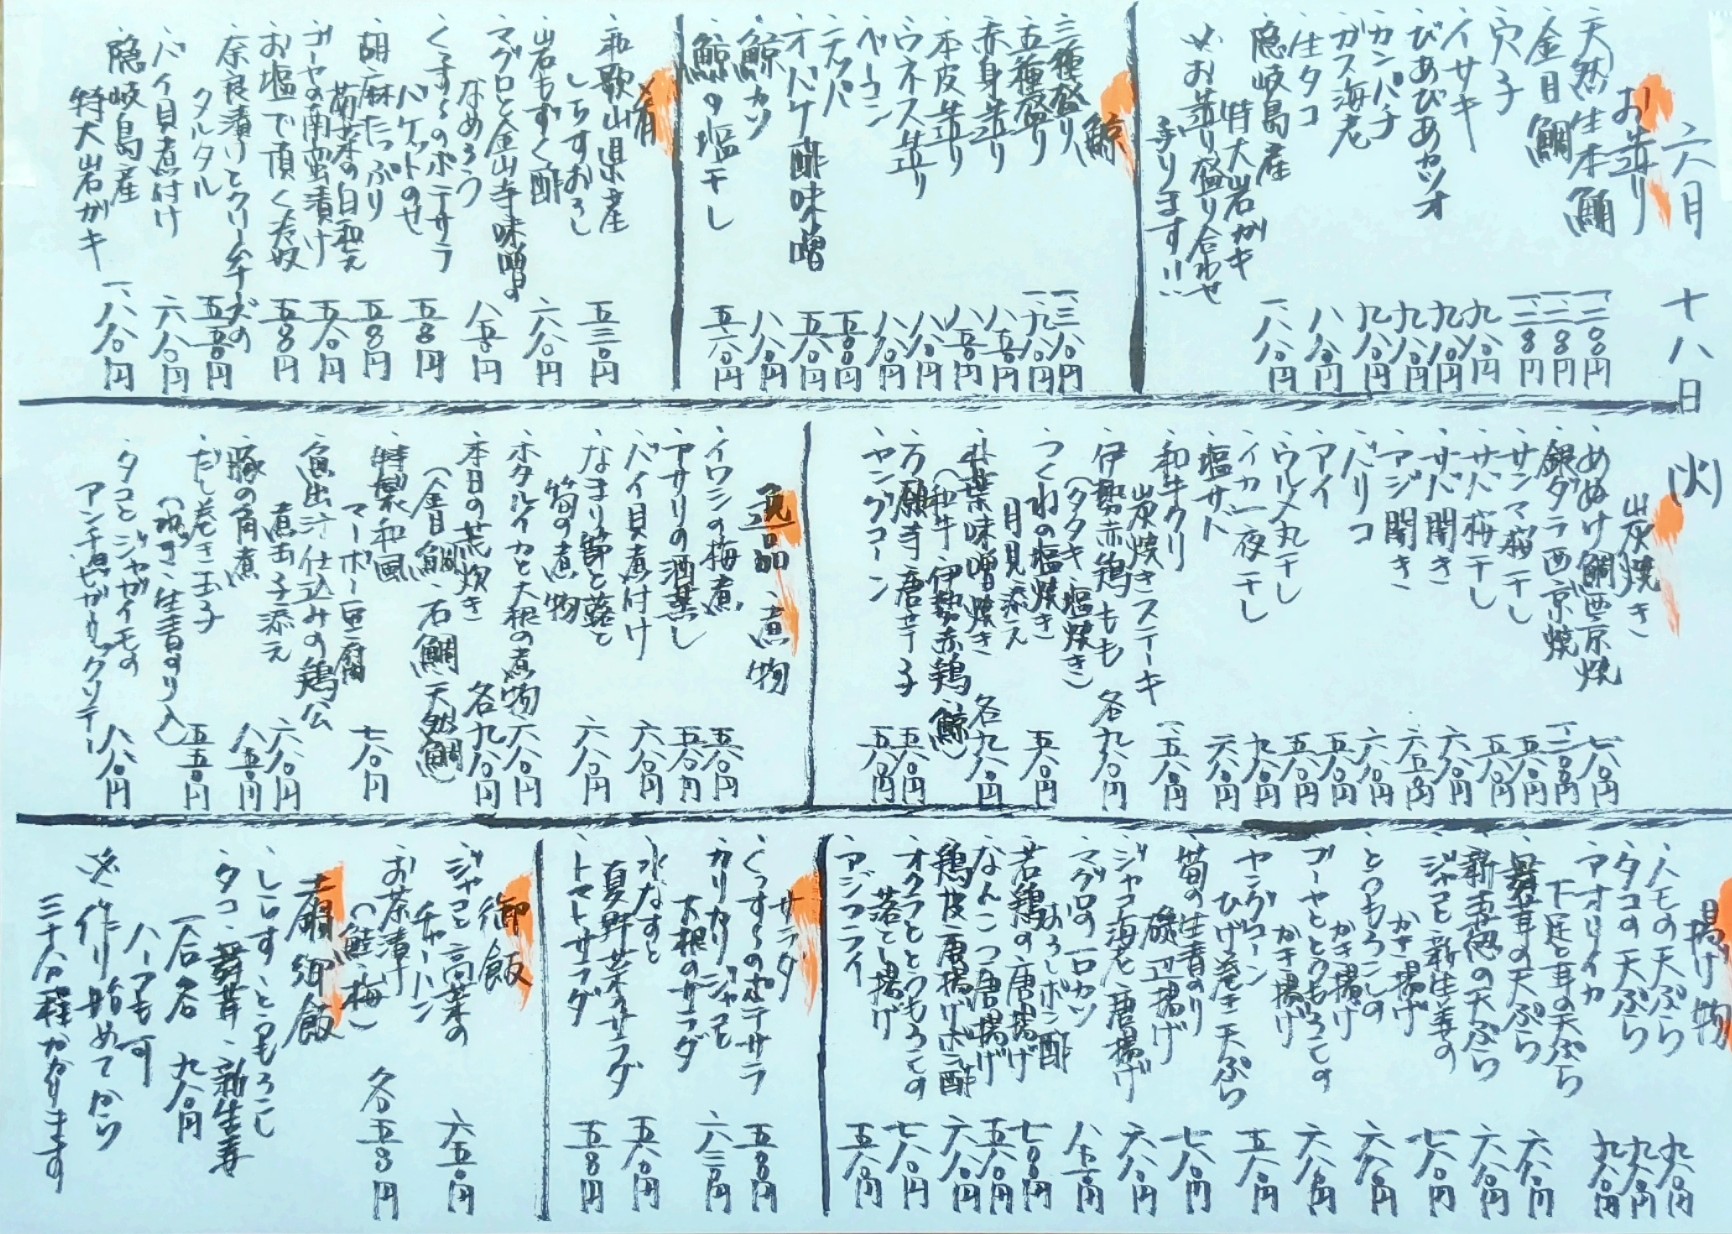 六月 十八日 (火)
お造り
天然生本鮪 一、二八〇円
金目鯛 一、二八〇円
穴子 一、二八〇円
イサキ 九八〇円
びあびあカツオ 九八〇円
カンパチ 九八〇円
ガス海老 九八〇円
生タコ 八八〇円
隠岐島産
特大岩ガキ 一、八八〇円
※お造り盛り合わせ
承ります!!
鯨
三種盛り 一、三八〇円
五種盛り 一、九八〇円
赤身造り 八五〇円
本皮造り 八八〇円
ウネス造り 八八〇円
ベーコン
オバケ酢味噌 五八〇円
鯨カツ 八八〇円
鯨の塩干し 五八〇円
肴
和歌山県産
しらすおろし 五三〇円
岩もずく酢 六八〇円
マグロと金山寺味噌の
なめろう 八五〇円
くずしのポテサラ
バケットのせ 五八〇円
胡麻たっぷり
菊菜の白和え 五八〇円
ゴーヤの南蛮漬け 五八〇円
お塩で頂く冷奴 五八〇円
奈良漬けとクリームチーズの
タルタル 五五〇円
バイ貝煮付け 六八〇円
隠岐島産
特大岩ガキ 一、八八〇円
炭焼き
あぬけ鯛西京焼 七八〇円
銀ダラ西京焼 一、二〇〇円
サンマ桜干し 五八〇円
サバ桜干し 五八〇円
サバ開き 六八〇円
アジ開き 六五〇円
バリコ 六八〇円
アイ 五八〇円
ウルメ丸干し 五八〇円
イカ一夜干し 九八〇円
塩サバ 六八〇円
和牛クリ
炭焼きステーキ 一、五八〇円
伊勢赤鶏もも
(タタキ・塩焼き) 各九八〇円
つくねの塩焼き
月見添え 五八〇円
朴葉味噌焼き
(和牛・伊勢赤鶏・鯨) 各九八〇円
万願寺唐辛子 五八〇円
ヤングコーン 五八〇円
逸品・煮物
イワシの梅煮 五八〇円
アサリの酒蒸し 五八〇円
バイ貝煮付け 六八〇円
なまり節と蕗と
筍の煮物 六八〇円
ホタルイカと大根の煮物 六八〇円
本日の荒炊き
(金目鯛・石鯛・天然鯛) 各九八〇円
特製和風
マーボー豆腐 七八〇円
魚出汁仕込みの鶏公
煮玉子添え 六八〇円
豚の角煮 八五〇円
だし巻き玉子
(ねぎ・生青のり入) 五五〇円
タコとジャガイモの
アンチョビガーリックソテー 八八〇円
揚げ物
ハモの天ぷら 九八〇円
タコの天ぷら 九八〇円
アオリイカ
下足と耳の天ぷら 九八〇円
舞茸の天ぷら 六八〇円
新玉葱の天ぷら 六八〇円
ジャコと新生姜の
かき揚げ 七八〇円
とうもろこしの
かき揚げ 六八〇円
ゴーヤととうもろこしの
かき揚げ 六八〇円
ヤングコーン
ひげ巻き天ぷら 五八〇円
筍の生青のり
磯辺揚げ 七八〇円
ジャコ海老唐揚げ 六八〇円
マグロの一口カツ
おろしポン酢
若鶏の唐揚げ 七八〇円
なんこつ唐揚げ 五八〇円
鶏皮唐揚げポン酢 六八〇円
オクラととうもろこしの
落とし揚げ 七八〇円
アジフライ 五八〇円
サラダ
くずしのポテサラ 五八〇円
カリカリジャコと
大根のサラダ 六三〇円
水なすと
夏野菜サラダ 五八〇円
トマトサラダ 五八〇円
御飯
ジャコと高菜の
チャーハン 六五〇円
お茶漬け
(鮭・梅) 各五八〇円
土鍋御飯
しらす・とうもろこし
タコ・舞茸・新生姜
一合各 九八〇円
ハーフも可
※作り始めてから
三十分程かかります